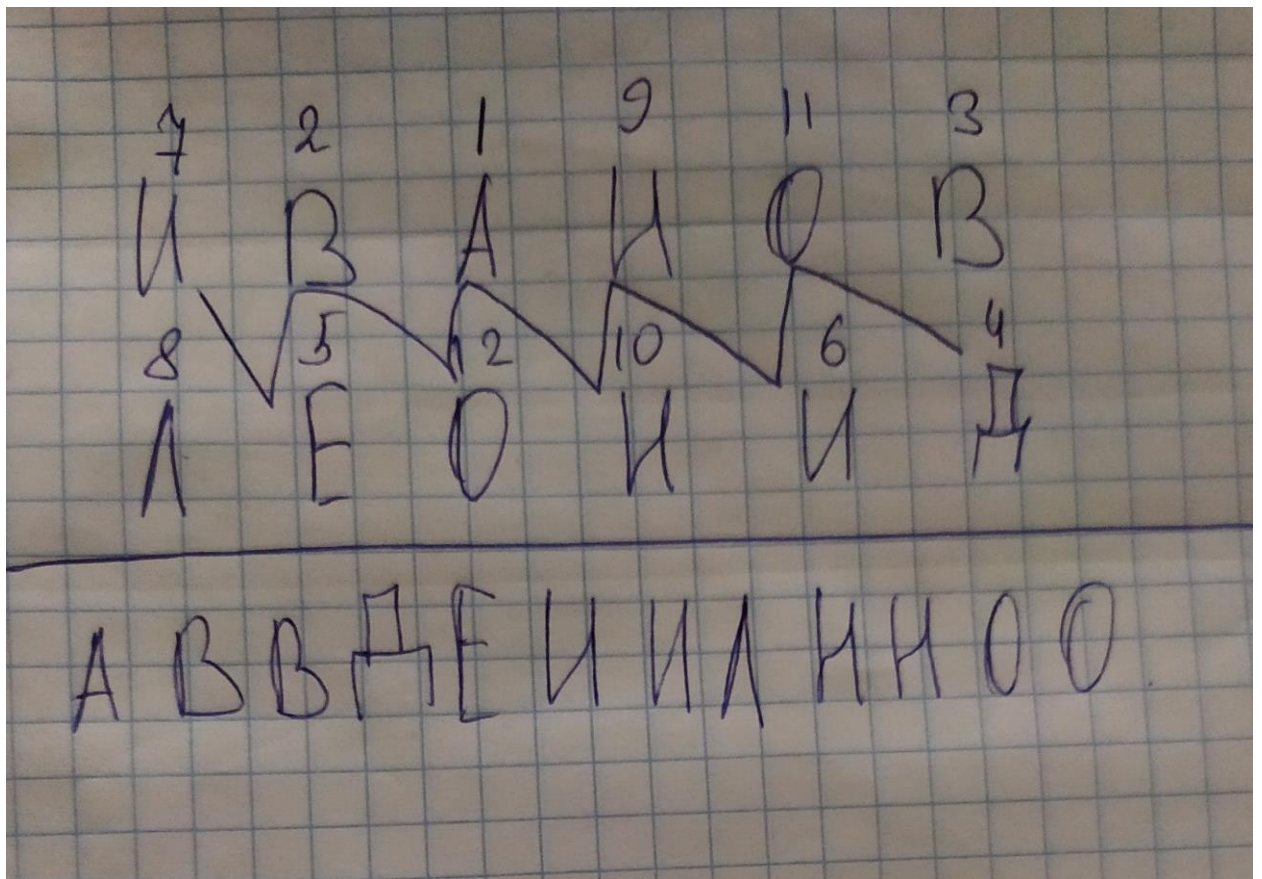 7 2 1 9 11 3
И В А Н О В
8 5 12 10 6 4
Л Е О Н И Д
А В В Д Е И И Л Н Н О О